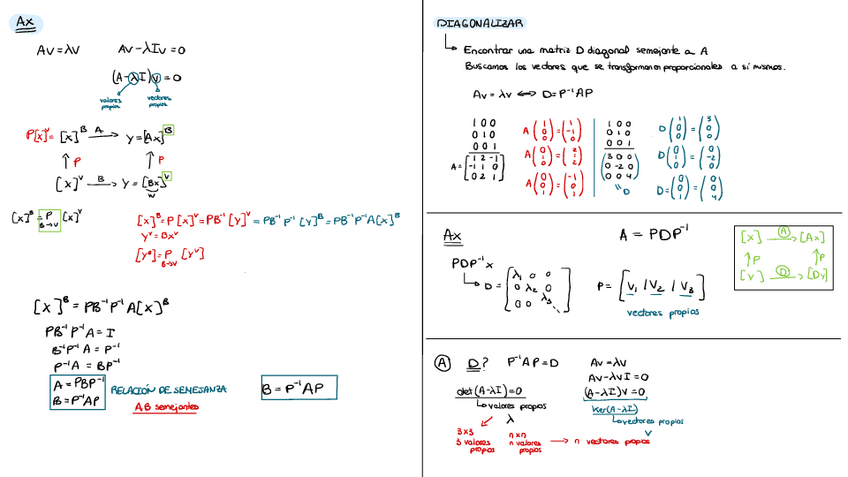 Ax
Av = λv    Av - λIv = 0
(A - λI)v = 0
valores propios    vectores propios
P[x]^V = [x]^B —A→ Y = [Ax]^B
↑P    ↑P
[x]^V —B→ Y = [Bx]^V
[x]^B = P B→V [x]^V
[x]^B = P[x]^V = PB⁻¹[y]^V = PB⁻¹P⁻¹[y]^B = PB⁻¹P⁻¹A[x]^B
Y^V = Bx^V
[y^B] = P B→V [y^V]
[x]^B = PB⁻¹P⁻¹A[x]^B
PB⁻¹P⁻¹A = I
B⁻¹P⁻¹A = P⁻¹
P⁻¹A = BP⁻¹
A = PBP⁻¹
B = P⁻¹AP
RELACIÓN DE SEMEJANZA
AB semejantes
B = P⁻¹AP
DIAGONALIZAR
↳ Encontrar una matriz D diagonal semejante a A
Buscamos los vectores que se transforman en proporcionales a sí mismos.
Av = λv ⟷ D = P⁻¹AP
1 0 0
0 1 0
0 0 1
A = [1 2 -1
-1 1 0
0 2 1]
A(1 0 0) = (1 -1 0)
A(0 1 0) = (2 1 2)
A(0 0 1) = (-1 0 1)
1 0 0
0 1 0
0 0 1
(3 0 0
0 -2 0
0 0 4)
= D
D(1 0 0) = (3 0 0)
D(0 1 0) = (0 -2 0)
D = (0 0 1) = (0 0 4)
Ax
A = PDP⁻¹
PDP⁻¹x
↳ D = [λ₁ 0 0
0 λ₂ 0
0 0 λ₃ ...]
P = [V₁ / V₂ / V₃]
vectores propios
[x] —A→ [Ax]
↑P    ↑P
[v] —D→ [Dy]
A    D?    P⁻¹AP = D
det(A - λI) = 0
↳ valores propios
λ
3x3
3 valores propios
n x n
n valores propios
→ n vectores propios
Av = λv
Av - λvI = 0
(A - λI)v = 0
Ker(A - λI)
↳ vectores propios
v